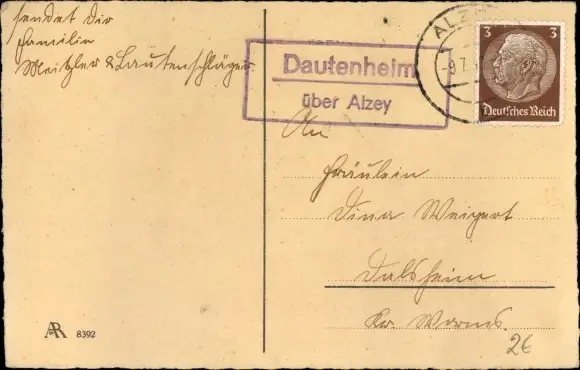 sendet Dir
Familie
Metzler & Lautenschläger
Dautenheim
über Alzey
ALZ
-9.7.
3 3
Deutsches Reich
An
Fräulein
Dina Weigert
Dalsheim
Kr. Worms.
2€
AR 8392